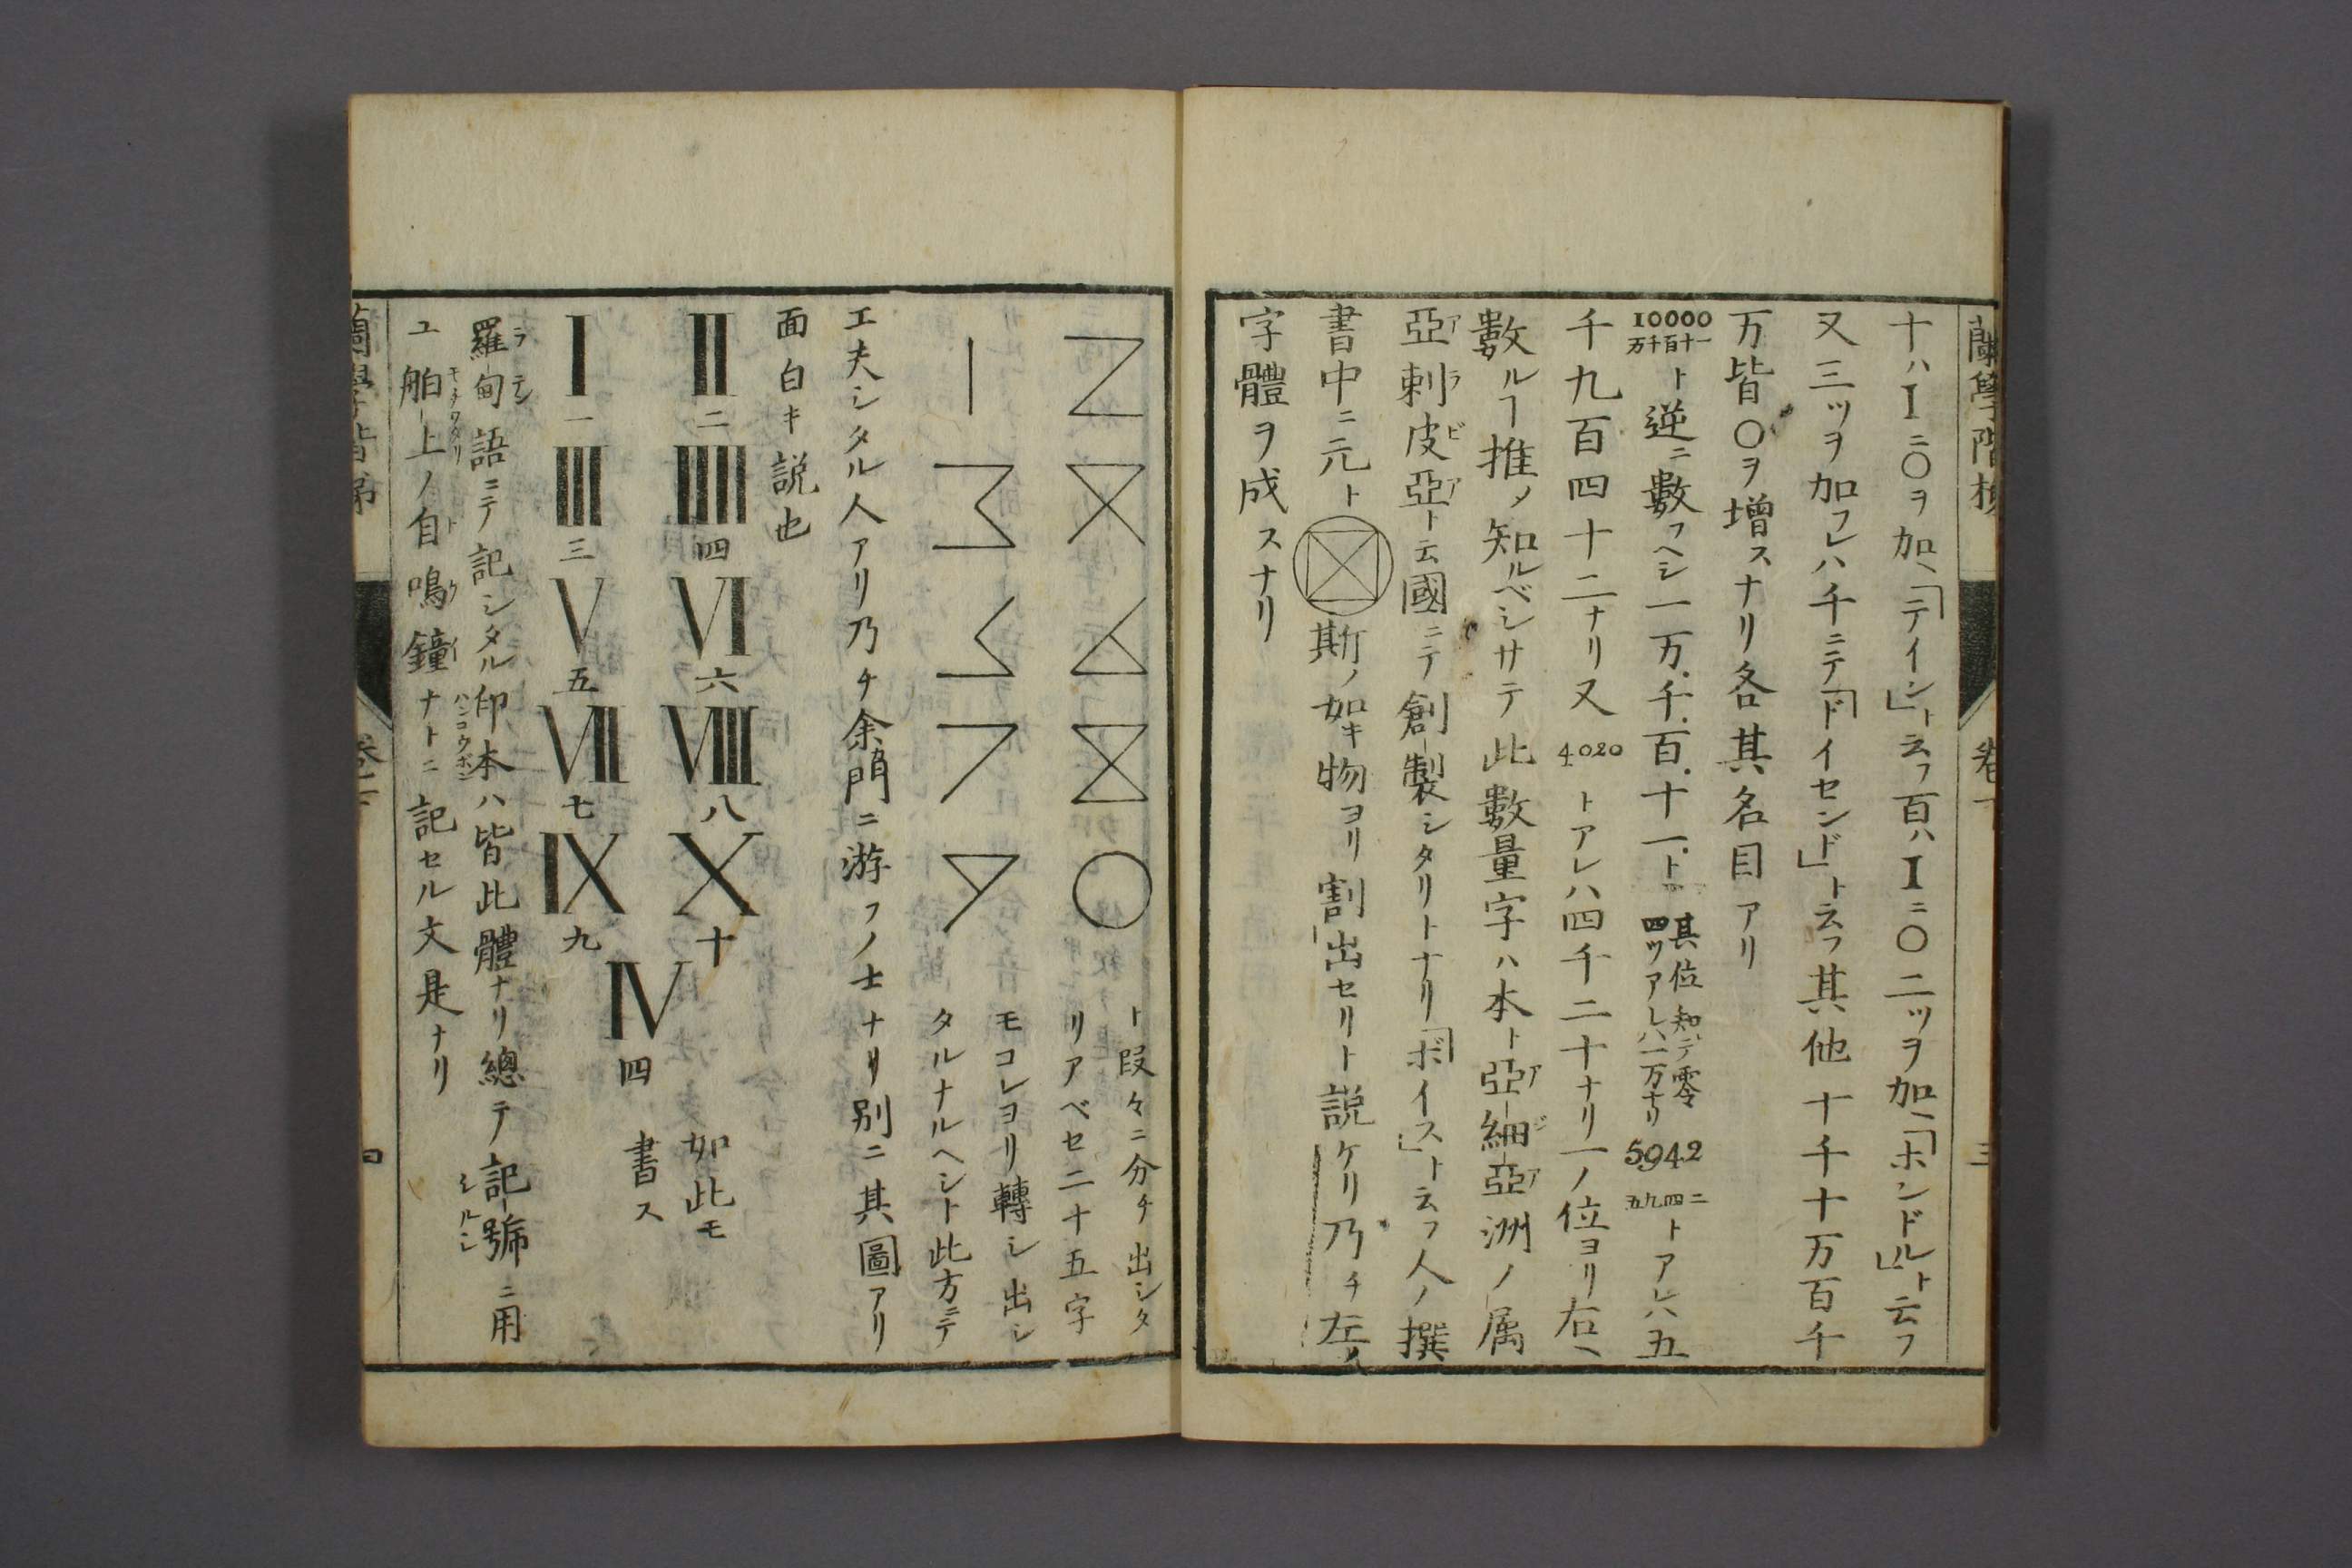 蘭學階梯
卷下
三
十ハI二〇ヲ加ヘ「テイン」ト云フ百ハI二〇二ツヲ加ヘ「ホンドル」ト云フ
又三ツヲ加フレハ千ニテ「ドイセンド」ト云フ其他十千十万百千
万皆〇ヲ増スナリ各其名目アリ
10000
万千百十一
ト逆ニ數フヘシ一万.千.百.十一.ト
其位知レテ零
四ツアレハ一万ナリ
5942
五九四二
トアレハ五
千九百四十二ナリ又4020トアレハ四千二十ナリ一ノ位ヨリ右ヘ
數ルヿ推メ知ルベシサテ此數量字ハ本ト亞細亞洲ノ属
アジア
亞剌皮亞ト云國ニテ創製シタリトナリ「ボイス」ト云フ人ノ撰
アラビア
書中ニ元ト斯ノ如キ物ヨリ割出セリト説ケリ乃チ左ノ
字體ヲ成スナリ
2 X 4 8 〇
ト叚々ニ分チ出シタ
リアベセ二十五字
1 3 5 7 9
モコレヨリ轉シ出シ
タルナルヘシト此方ニテ
工夫シタル人アリ乃チ余門ニ游フノ士ナリ別ニ其圖アリ
面白キ説也
II二 IIII四 VI六 VIII八 X十
I一 III三 V五 VII七 IX九
IV四
如此モ
書ス
羅甸語ニテ記シタル印本ハ皆此體ナリ總テ記號ニ用
ラテン
ハンコウボン
シルシ
ユ舶上ノ自鳴鐘ナトニ記セル文是ナリ
モチワタリ
トケイ
蘭學階梯
卷下
四